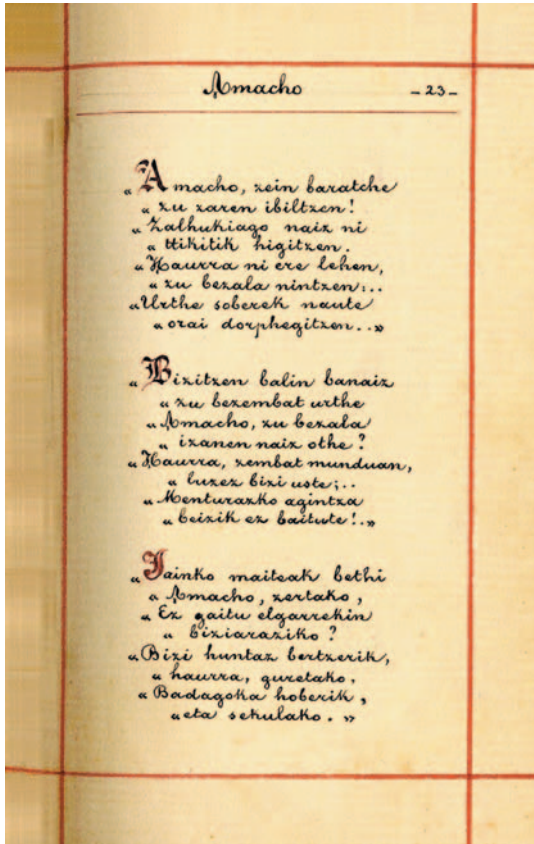 Amacho -23-
„Amacho, zein baratche
„zu zaren ibiltzen!
„Zalhukiago naiz ni
„ttikitik higitzen.
„Haurra ni ere lehen,
„zu bezala nintzen:..
„Urthe soberek naute
„orai dorphegitzen..»
„Bizitzen balin banaiz
„zu bezembat urthe
„Amacho, zu bezala
„izanen naiz othe?
„Haurra, zembat munduan,
„luzez bizi uste;..
„Menturazko agintza
„beizik ez baitute!.»
„Jainko maiteak bethi
„Amacho, zertako,
„Ez gaitu elgarrekin
„biziaraziko?
„Bizi huntaz bertzerik,
„haurra, guretako,
„Badagoka hoberik,
„eta sekulako.»